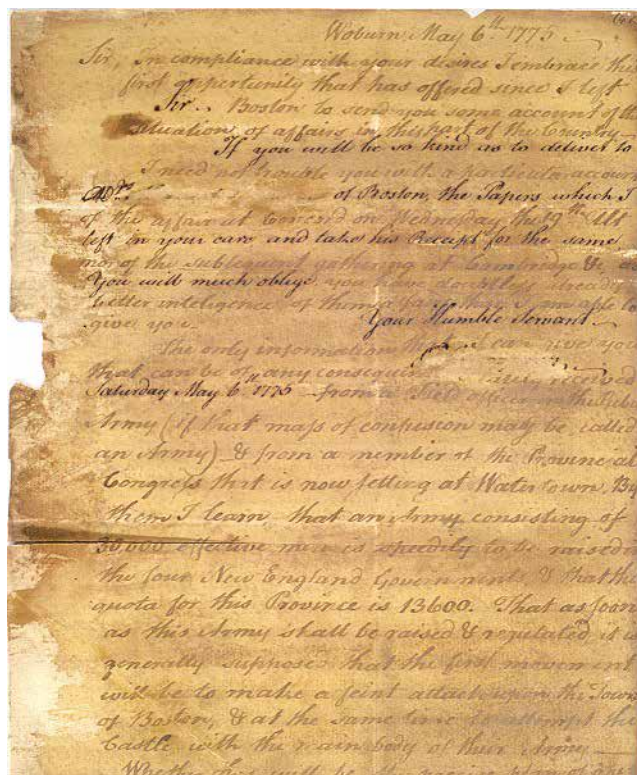 Woburn May 6th. 1775
Sir, In compliance with your desires I embrace this
first opportunity that has offered since I left
Sir. Boston to send you some account of the
situation of affairs in this part of the Country
If you will be so kind as to deliver to
I need not trouble you with a particular account
of Boston, the Papers which I
of the affair at Concord on Wednesday the 19th Ult
left in your care and take his Receipt for the same
nor of the subsequent gathering at Cambridge &c, as
You will much oblige you have doubtless already
better inteligence of them than I am able to
give you.
Your Humble Servant
The only information that I can give you
that can be of any consequence received
Saturday May 6th 1775 from a Field officer in the Rebel
Army (if that mass of confusion may be called
an Army) & from a member of the Provincial
Congress that is now setting at Watertown. By
them I learn that an Army consisting of
30,000 effective men is speedily to be raised in
the four New England Governments, & that the
quota for this Province is 13600. That as soon
as this Army shall be raised & regulated it is
generally supposed that the first movement
will be to make a feint attack upon the Town
of Boston, & at the same time to attempt the
Castle with the main body of their Army
Whether this will be the